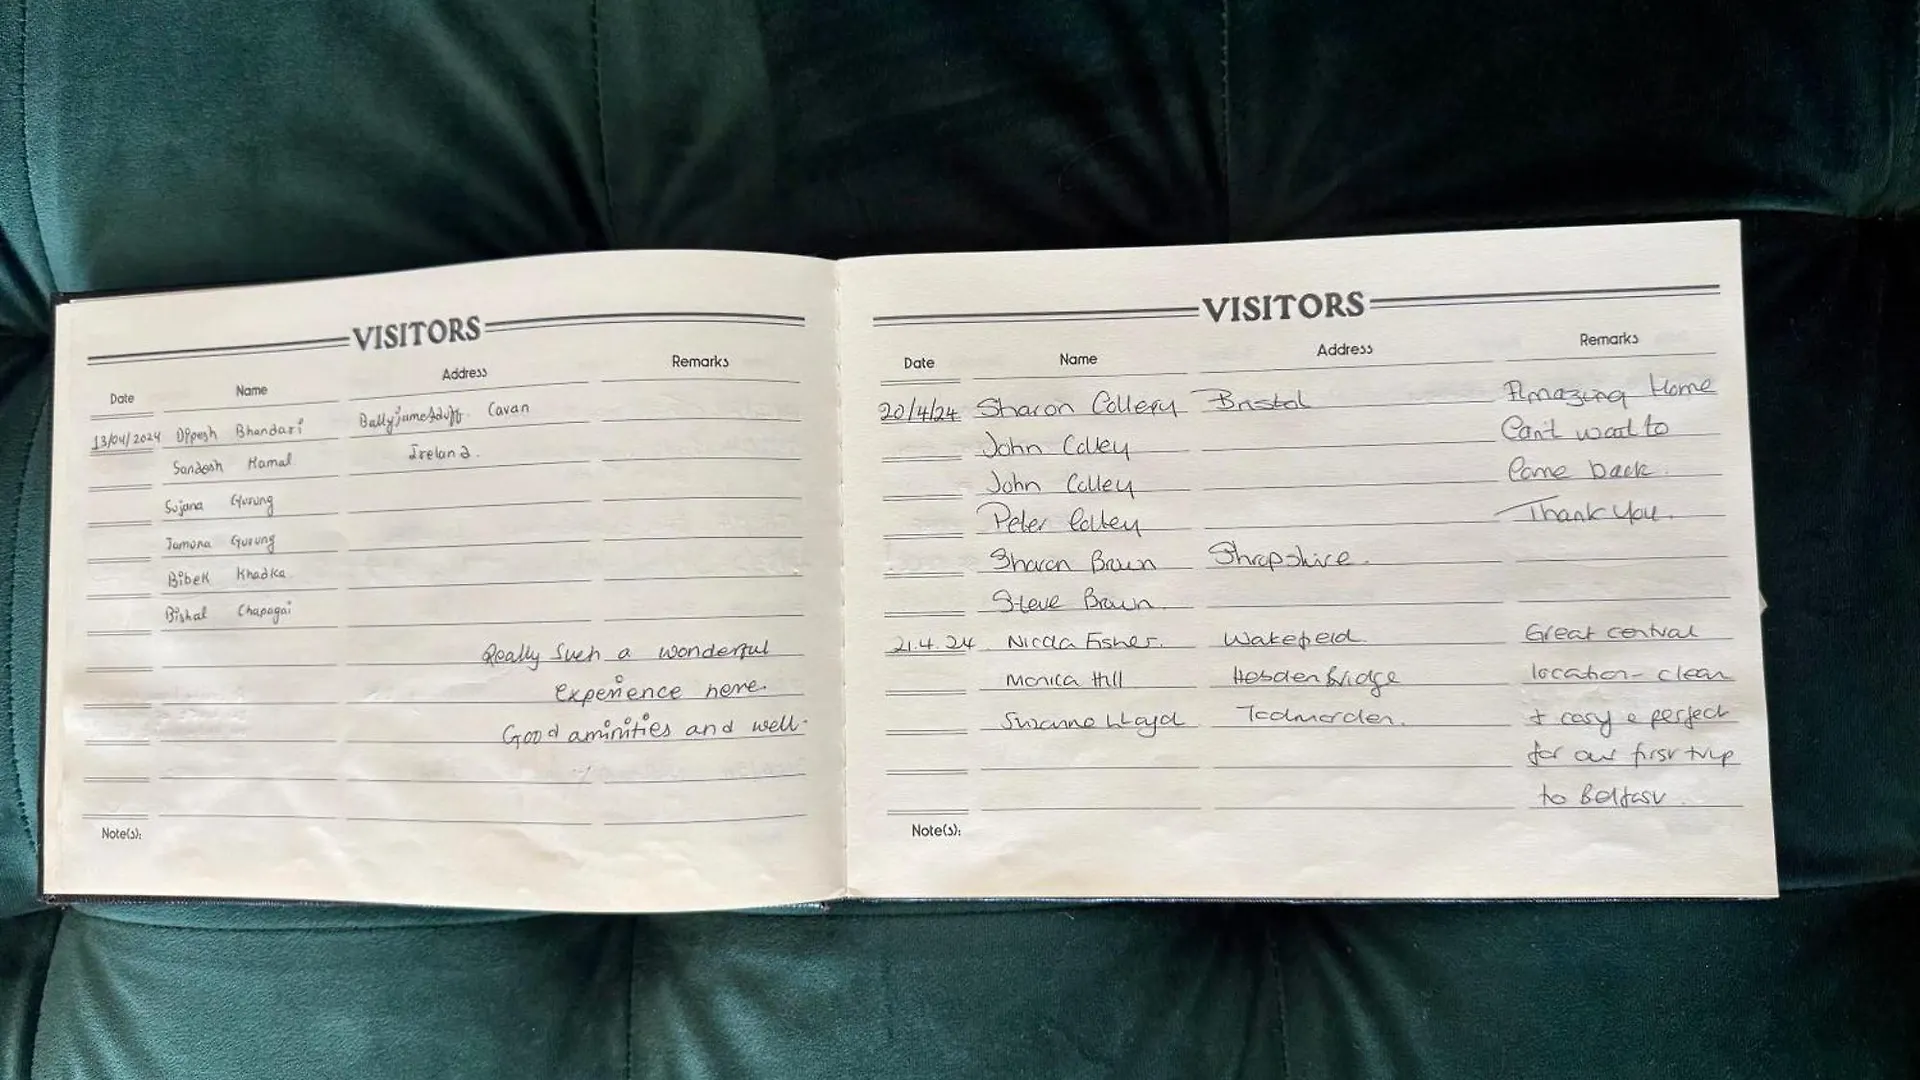 VISITORS
Date Name Address Remarks
13/04/2024 Dipesh Bhandari Ballyjamesduff. Cavan
Sandesh Kamal Ireland.
Sujana Gurung
Jamuna Gurung
Bibek Khadka
Bishal Chapagai
Really Such a wonderful
Experience here.
Good aminities and well-
Note(s):
VISITORS
Date Name Address Remarks
20/4/24 Sharon Bristol Amazing Home
John Colley Can't wait to
John Colley Come back.
Peter Colley Thank you.
Sharon Brown Shropshire.
Steve Brown.
21.4.24 Nicola Fisher. Wakefield Great central
Monica Hill Hebden Bridge location - clean
Suzanne Lloyd Todmorden. + cosy & perfect
for our first trip
to Belfast.
Note(s):